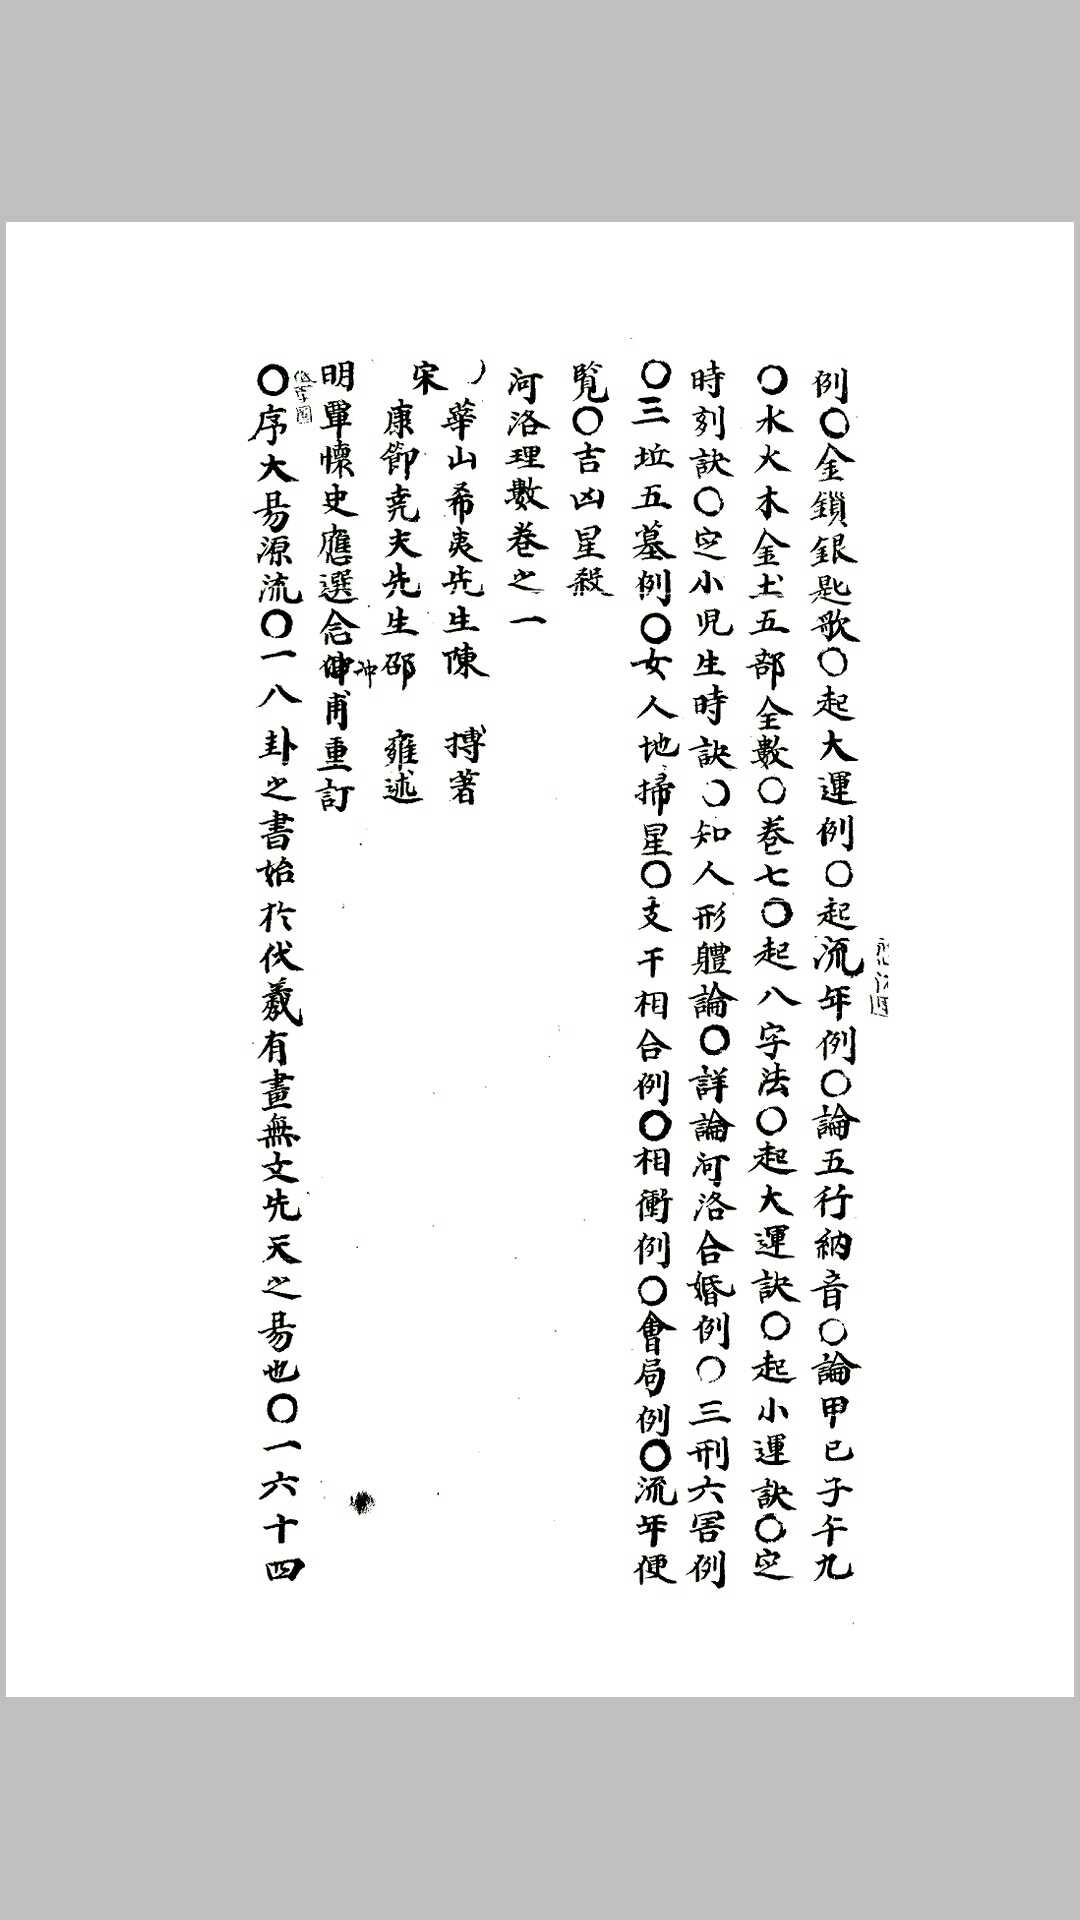 例〇金鎖銀匙歌〇起大運例〇起流年例〇論五行納音〇論甲己子午九
〇水火木金土五部全數〇卷七〇起八字法〇起大運訣〇起小運訣〇定
時刻訣〇定小児生時訣〇知人形軆論〇詳論河洛合婚例〇三刑六害例
〇三坵五墓例〇女人地掃星〇支干相合例〇相衝例〇會局例〇流年便
覧〇吉凶星殺
河洛理數卷之一
華山希夷先生陳 摶著
宋
康節尭夫先生邵 雍述
明覃懷史應選念冲甫重訂
〇序大易源流〇一八卦之書始於伏羲有畫無文先天之易也〇一六十四